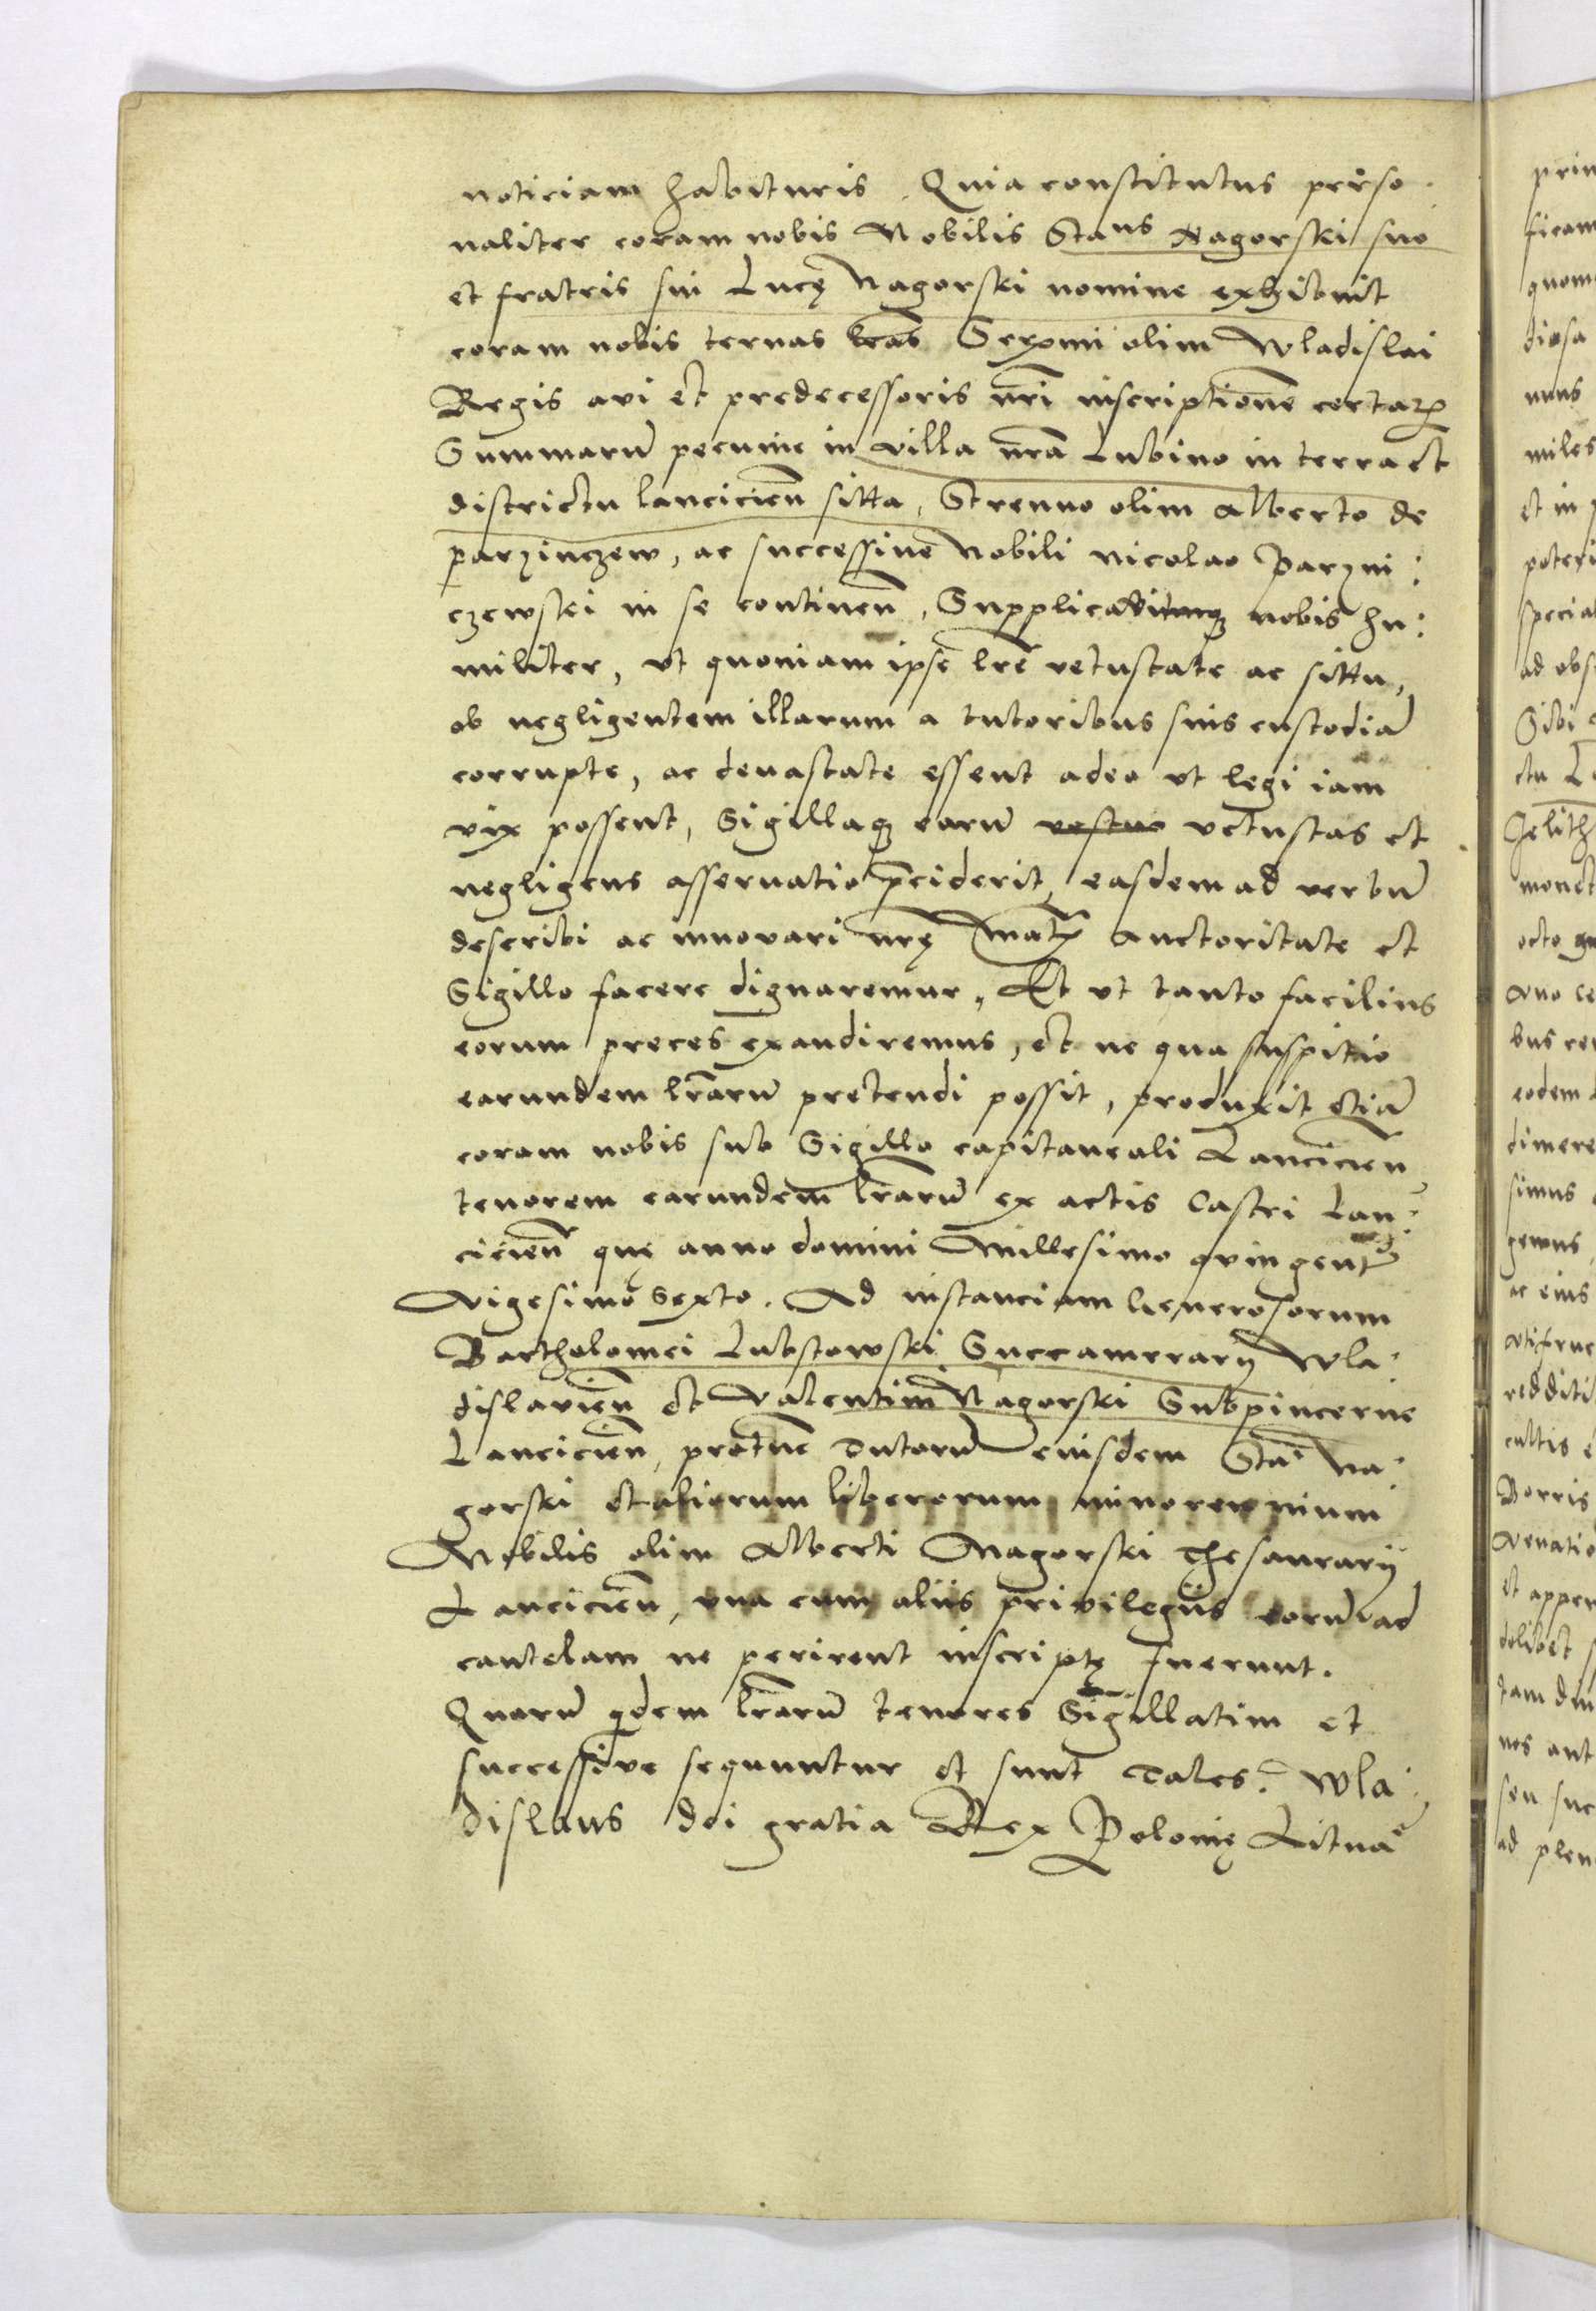 noticiam habituris. Quia constitutus perso
naliter coram nobis Nobilis Stans Nagorski suo
et fratris sui Lucę Nagorski nomine exhibuit
coram nobis ternas lras Serenmi olim Wladislai
Regis avi et predecessoris nri inscriptione certarꝝ
Summarū pecunie in villa nra Lubino in terra et
districtu lanciciēn sitta, Strenuo olim Alberto de
parzinczew, ac successiue Nobili Nicolao Parzni:
czewski in se continēn, Supplicavitqꝫ nobis hu:
militer, vt quoniam ipse lre vetustate ac sittu,
ob negligentem illarum a tutoribus suis custodiā
corrupte, ac deuastate essent adeo vt legi iam
vix possent, Sigillaqꝫ earū vetustas et
negligens asseruatio p̄ciderit, easdem ad verbū
describi ac innovari nrę Matis auctoritate et
Sigillo facere dignaremur, Et vt tanto facilius
eorum preces exaudiremus, et ne qua suspitio
earundem lrarū pretendi possit, produxit etiā
coram nobis sub Sigillo capitaneali Lanciciēn
tenorem earundem lrarū ex actis Castri Lan:
ciciēn quę anno domini Millesimo quingentmo
Vigesimo Sexto. Ad instanciam Generosorum
Bartholomei Lubstowski Succamerarij Wla:
dislaviēn et Valentini Nagorski Subpincerne
Lanciciēn, protunc Tutorū eiusdem Stai Na:
gorski et aliorum liberorum minorennium
Nobilis olim Alberti Nagorski Thesaurarij
Lanciciēn, vna cum aliis privilegiis eorū ad
cautelam ne perirent inscriptę fuerunt.
Quarū qdem lrarū tenores Sigillatim et
successive sequuntur et sunt Tales. Wla:
dislaus dei gratia Rex Polonię Litua